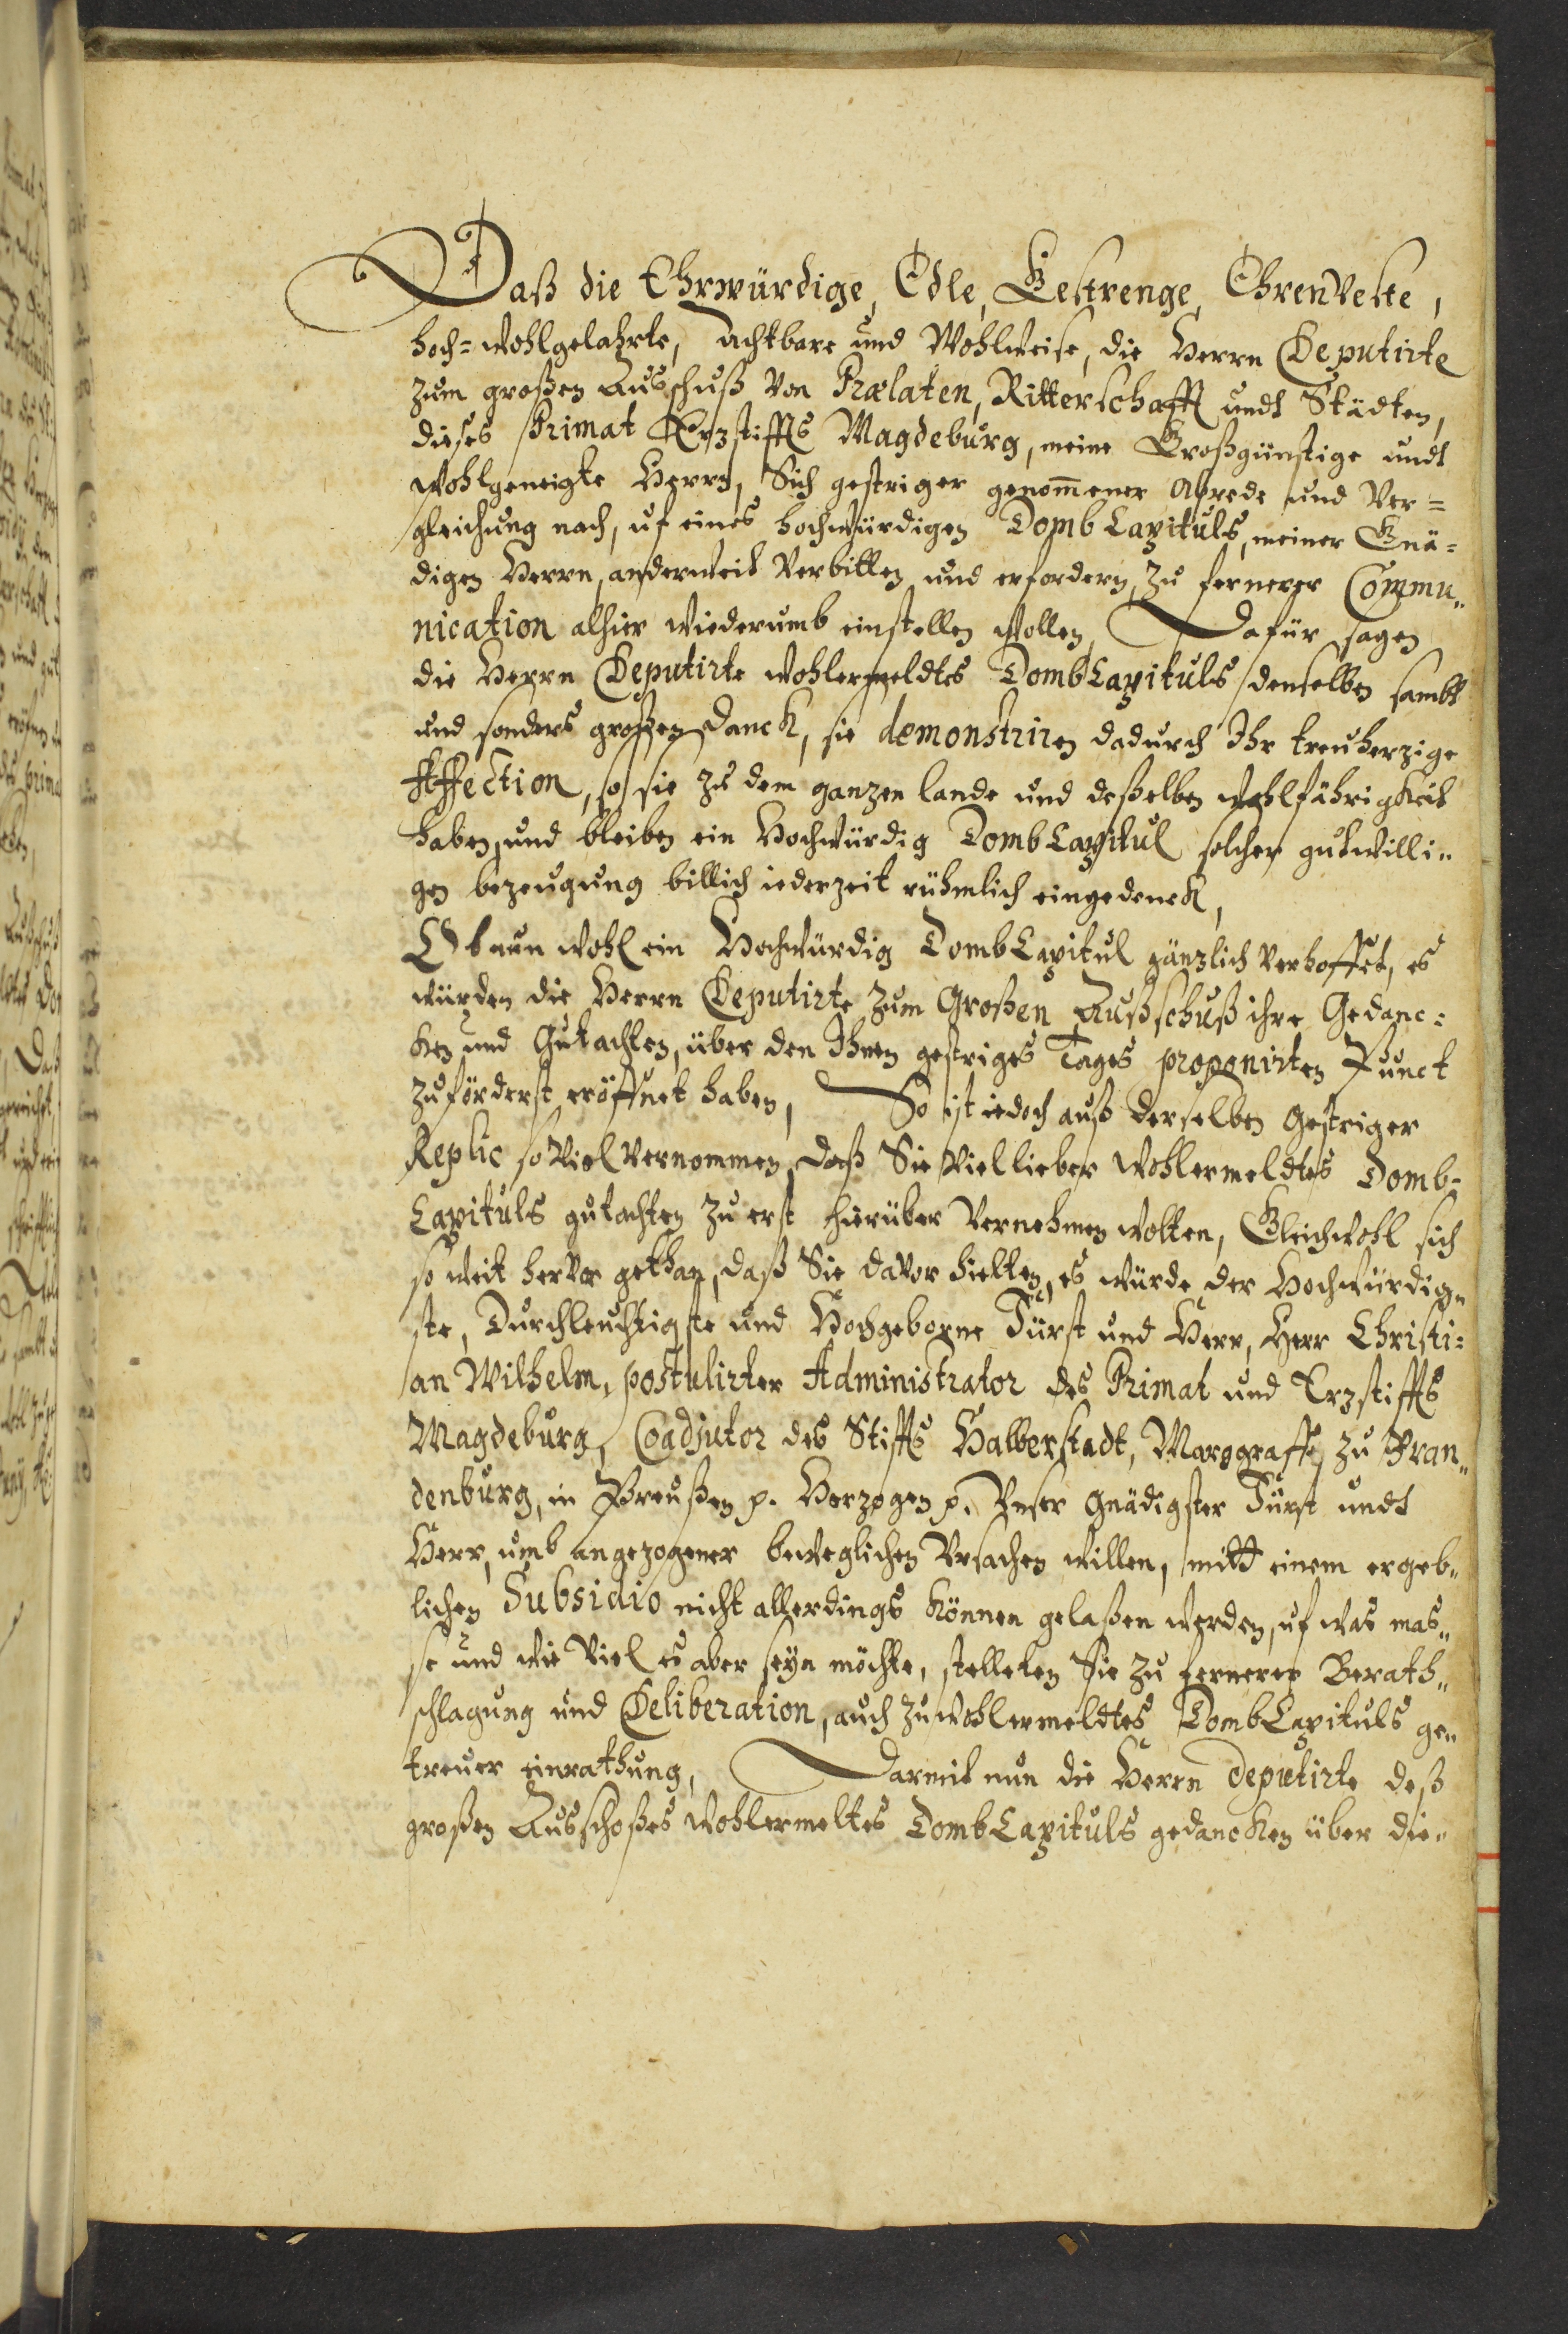 Daß die Ehrwürdige, Edle, Gestrenge, EhrenVeste,
hoch- Wohlgelahrte, Achtbare und Wohlweise, die Herrn Deputirte
zum großen Ausschuß von Prælaten, Ritterschafft undt Städten,
dieses Primat Erzstiffts Magdeburg, meine Großgünstige undt
wohlgeneigte Herrn, Sich gestriger genom̄ener Abrede und Ver=
gleichung nach, uf eines hochwürdigen Domb Capituls, meiner Gnä=
digen Herrn, anderweit Verbitten und erfordern, zu fernerer Commu„
nication alhier wiederumb einstellen wollen, Dafür sagen
die Herrn Deputirte wohlermeldtes DombCapituls denselben sambt
und sonders großen Danck, sie demonstriren dadurch Ihr treuherzige
Affection, so sie zu dem ganzen lande und deßelben wohlfährigkeit
haben, und bleiben ein Hochwürdig DombCapitul solcher gutwilli„
gen bezeugung billich iederzeit rühmlich eingedenck,
Ob nun wohl ein Hochwürdig DombCapitul gänzlich verhoffet, es
würden die Herrn Deputirte zum Großen Außschuß ihre Gedanc=
ken und Gutachten, über den Ihnen gestriges Tages proponirten Punct
zuförderst eröffnet haben, So ist iedoch auß derselben gestriger
Replic so viel vernommen, daß Sie viel lieber wohlermeldtes Domb=
Capituls gutachten zu erst hierüber vernehmen wolten, Gleichwohl sich
so weit hervor gethan, daß Sie davor hielten, es würde der Hochwürdig„
ste, Durchleuchtigste und Hochgeborne Fürst und Herr, Herr Christi=
an Wilhelm, postulirter Administrator des Primat und Erzstiffts
Magdeburg, Coadjutor des Stiffts Halberstadt, Marggraffe zu Bran„
denburg, in Preußen p. Herzogen p. Unser gnädigster Fürst undt
Herr, umb angezogener beweglichen Ursachen willen, mitt einem ergeb„
lichen Subsidio nicht allerdings können gelaßen werden, uf was mas„
se und wie viel es aber seyn möchte, stelleten Sie zu fernerer Berath„
schlagung und Deliberation, auch zu wohlermeldtes DombCapituls ge„
treuer einrathung, Darmit nun die Herrn deputirte deß
großen Ausschoßes wohlermeltes DombCapituls gedancken über die„